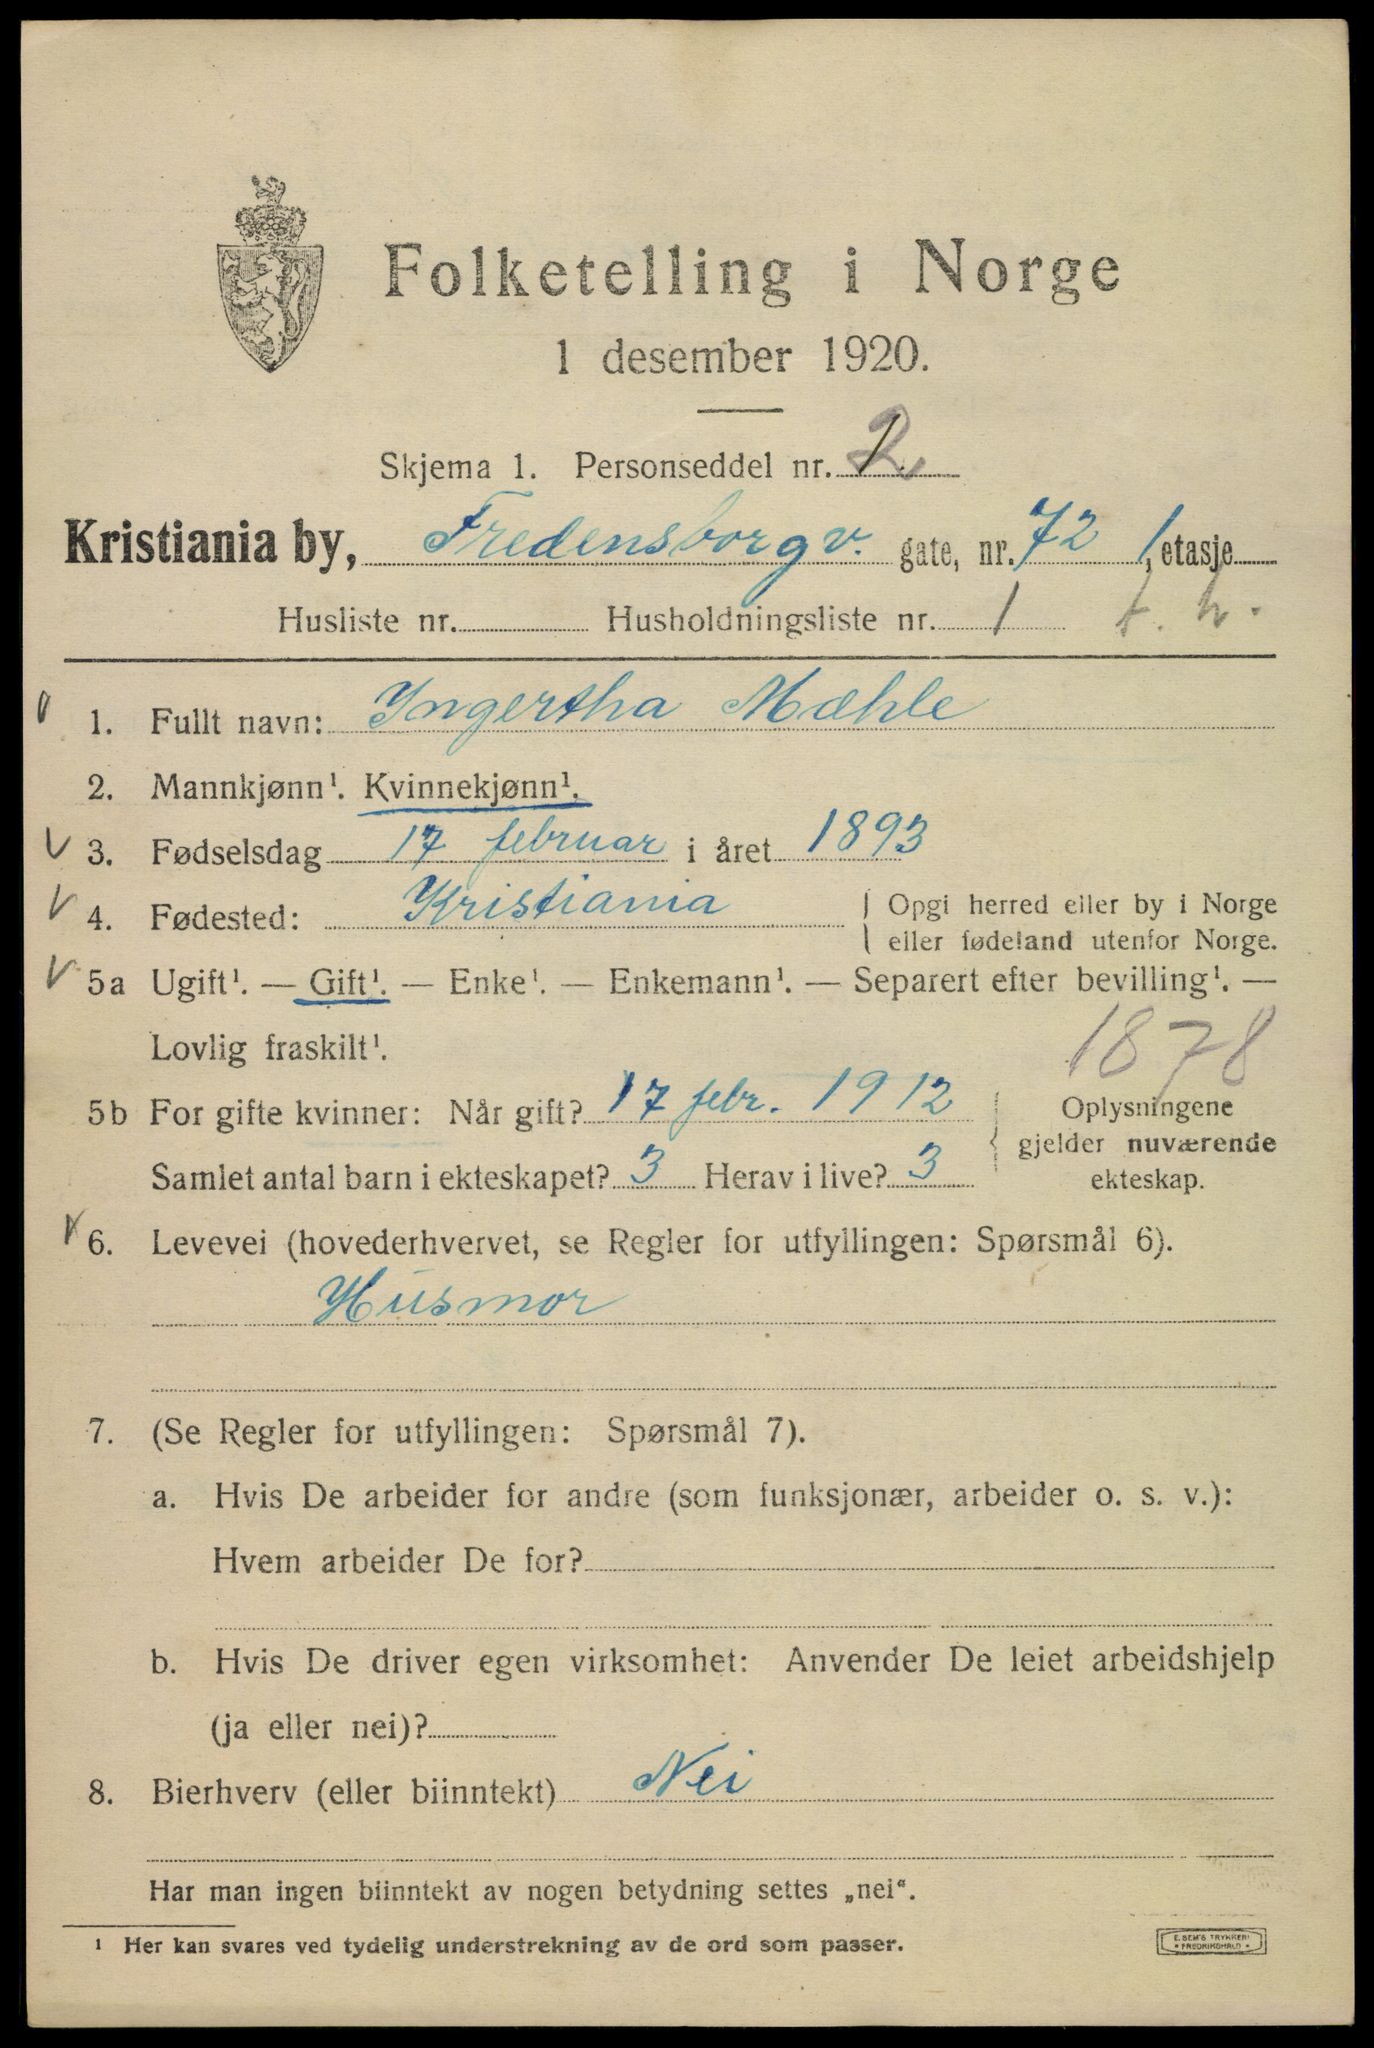 Folketelling i Norge
1 desember 1920.
Skjema 1. Personseddel nr. 2
Kristiania by, Fredensborgv. gate, nr. 72 1, etasje
Husliste nr. Husholdningsliste nr. 1 t. h.
1. Fullt navn: Yngertha Mæhle
2. Mannkjønn¹. Kvinnekjønn¹.
3. Fødselsdag 17 februar i året 1893
4. Fødested: Kristiania Opgi herred eller by i Norge
eller fødeland utenfor Norge.
5a Ugift¹. — Gift¹. — Enke¹. — Enkemann¹. — Separert efter bevilling¹. —
Lovlig fraskilt¹. 1878
5b For gifte kvinner: Når gift? 17 febr. 1912 Oplysningene
gjelder nuværende
Samlet antal barn i ekteskapet? 3 Herav i live? 3 ekteskap.
6. Levevei (hovederhvervet, se Regler for utfyllingen: Spørsmål 6).
Husmor
7. (Se Regler for utfyllingen: Spørsmål 7).
a. Hvis De arbeider for andre (som funksjonær, arbeider o. s. v.):
Hvem arbeider De for?
b. Hvis De driver egen virksomhet: Anvender De leiet arbeidshjelp
(ja eller nei)?
8. Bierhverv (eller biinntekt) Nei
Har man ingen biinntekt av nogen betydning settes „nei“.
¹ Her kan svares ved tydelig understrekning av de ord som passer.
E. SEM'S TRYKKERI
FREDRIKSHALD